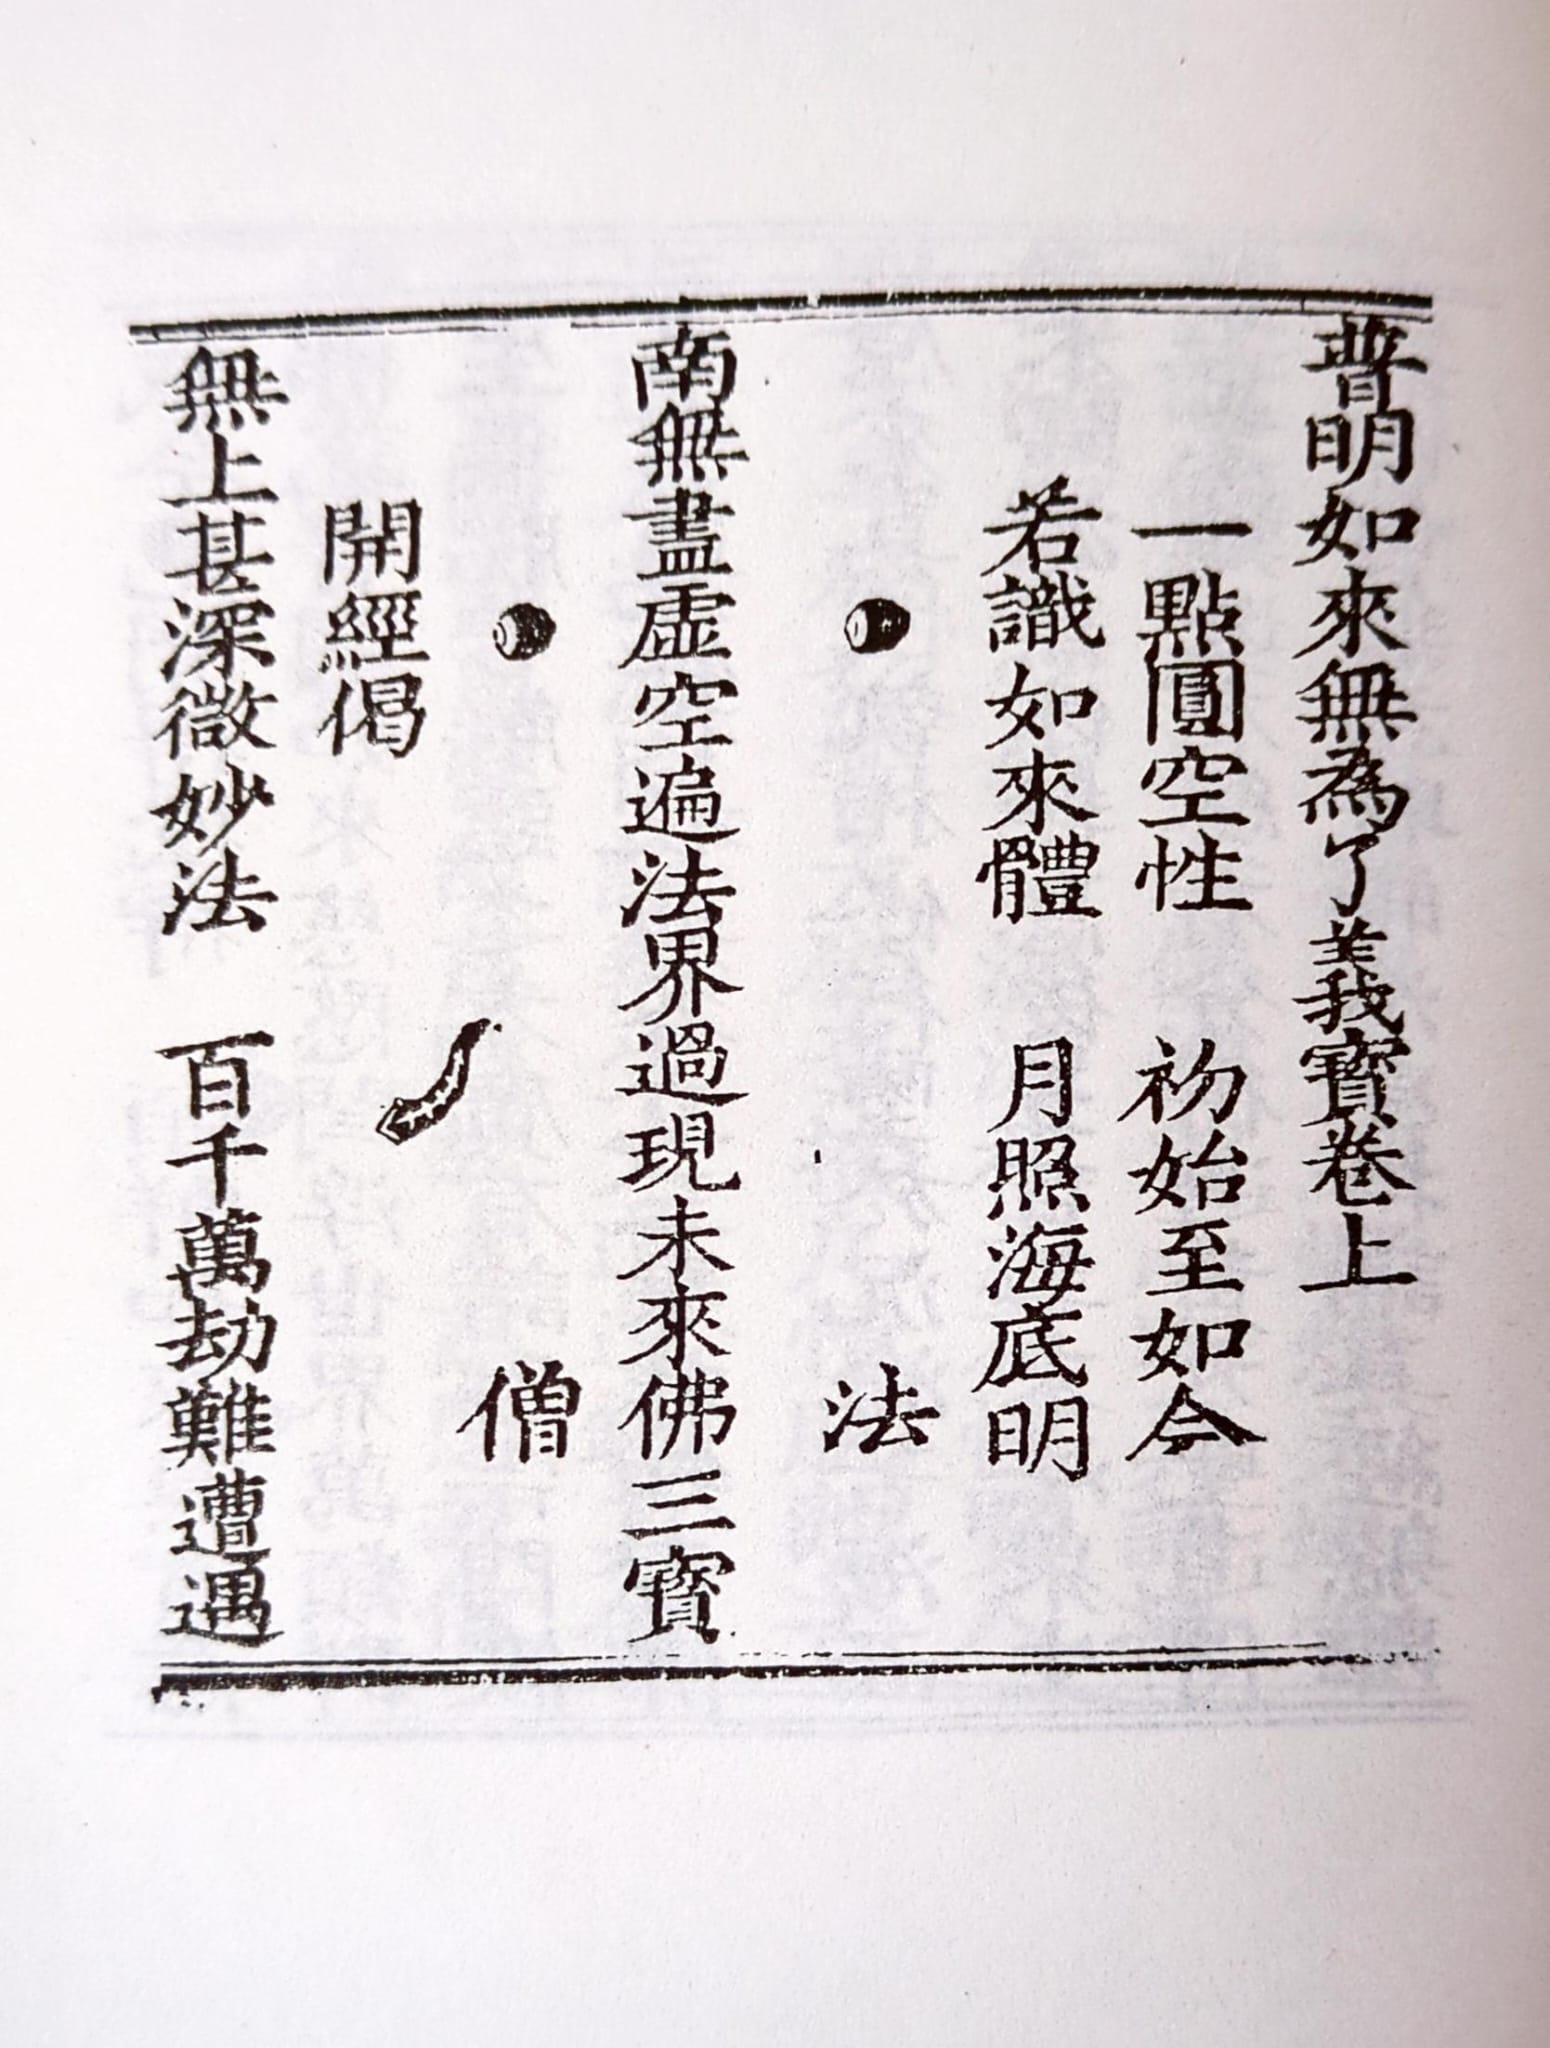 普明如來無為了義寶卷上
一點圓空性 初始至如今
若識如來體 月照海底明
法
南無盡虛空遍法界過現未來佛三寶
僧
開經偈
無上甚深微妙法 百千萬劫難遭遇